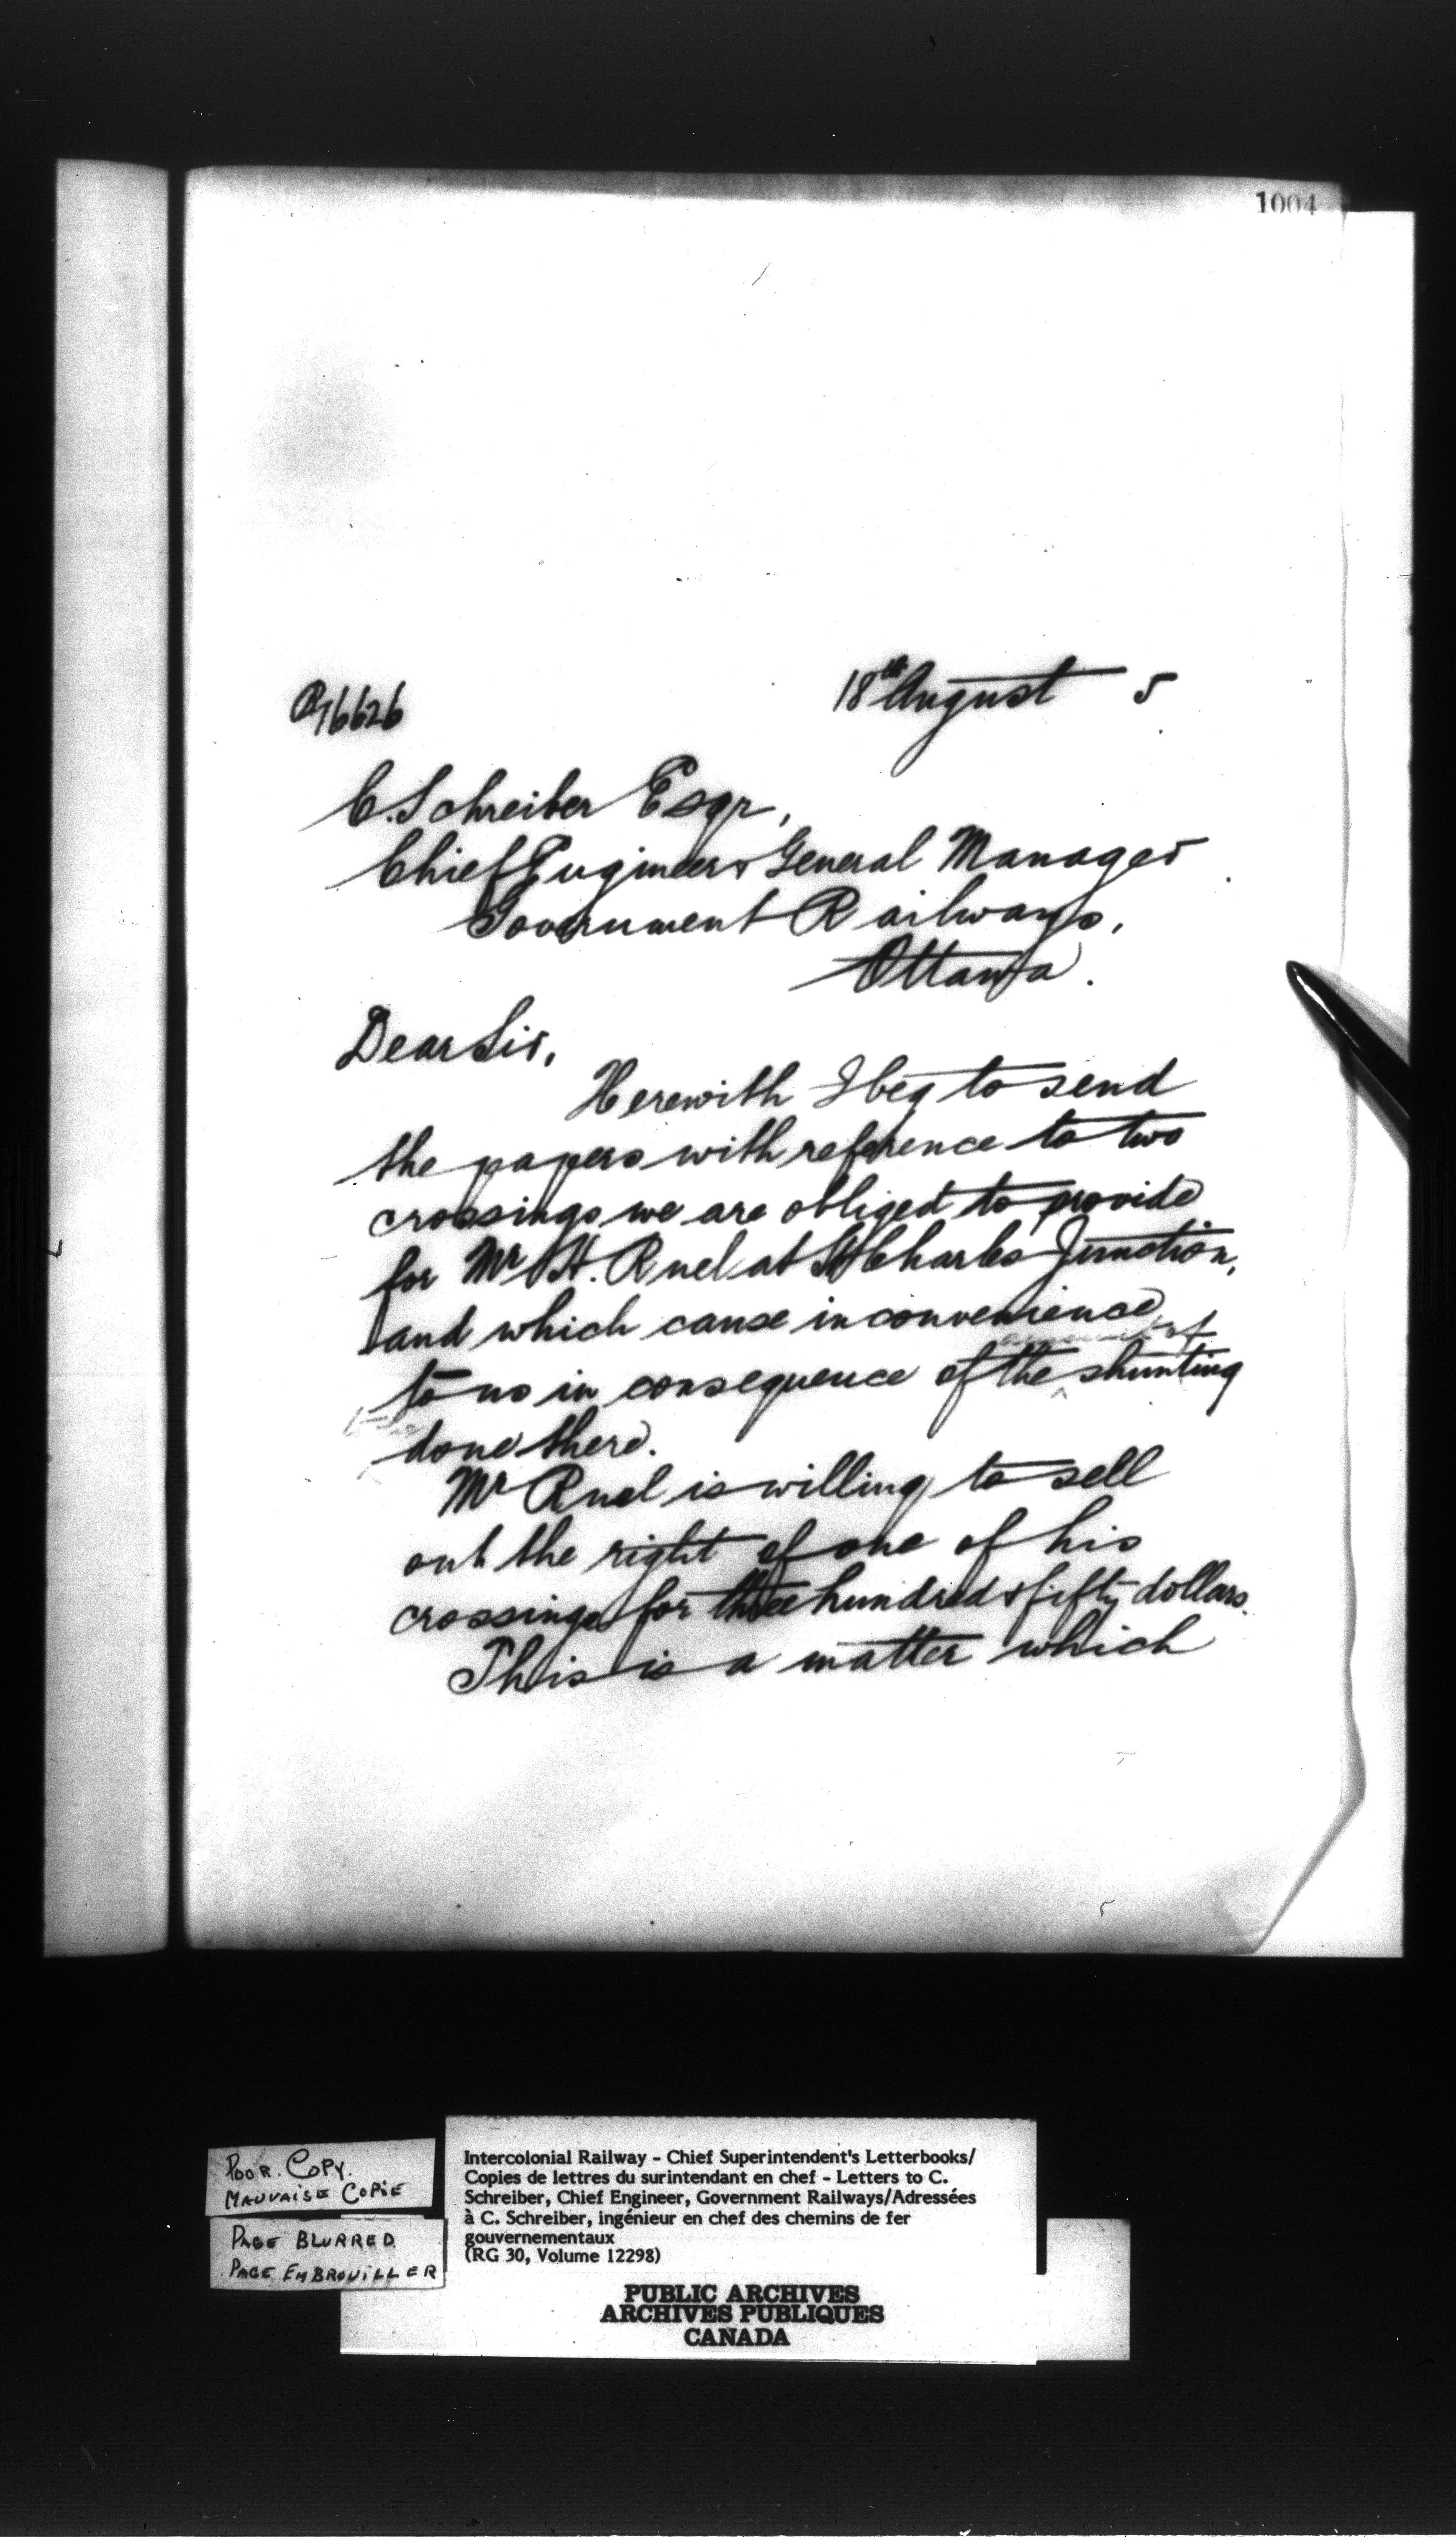 1004
18th August 5
16626
C. Schreiber Esqr,
Chief Engineer & General Manager
Government Railways,
Ottawa.
Dear Sir,
Herewith I beg to send
the papers with reference to two
crossings we are obliged to provide
for Mr H. Ruel at St Charles Junction,
and which cause inconvenience
amount of
to us in consequence of the ^ shunting
done there.
Mr Ruel is willing to sell
out the right of one of his
crossings for three hundred & fifty dollars.
This is a matter which
POOR. COPY.
MAUVAISE COPiE
PAGE BLURRED.
PAGE EMBROUILLER
Intercolonial Railway - Chief Superintendent's Letterbooks/
Copies de lettres du surintendant en chef - Letters to C.
Schreiber, Chief Engineer, Government Railways/Adressées
à C. Schreiber, ingénieur en chef des chemins de fer
gouvernementaux
(RG 30, Volume 12298)
PUBLIC ARCHIVES
ARCHIVES PUBLIQUES
CANADA